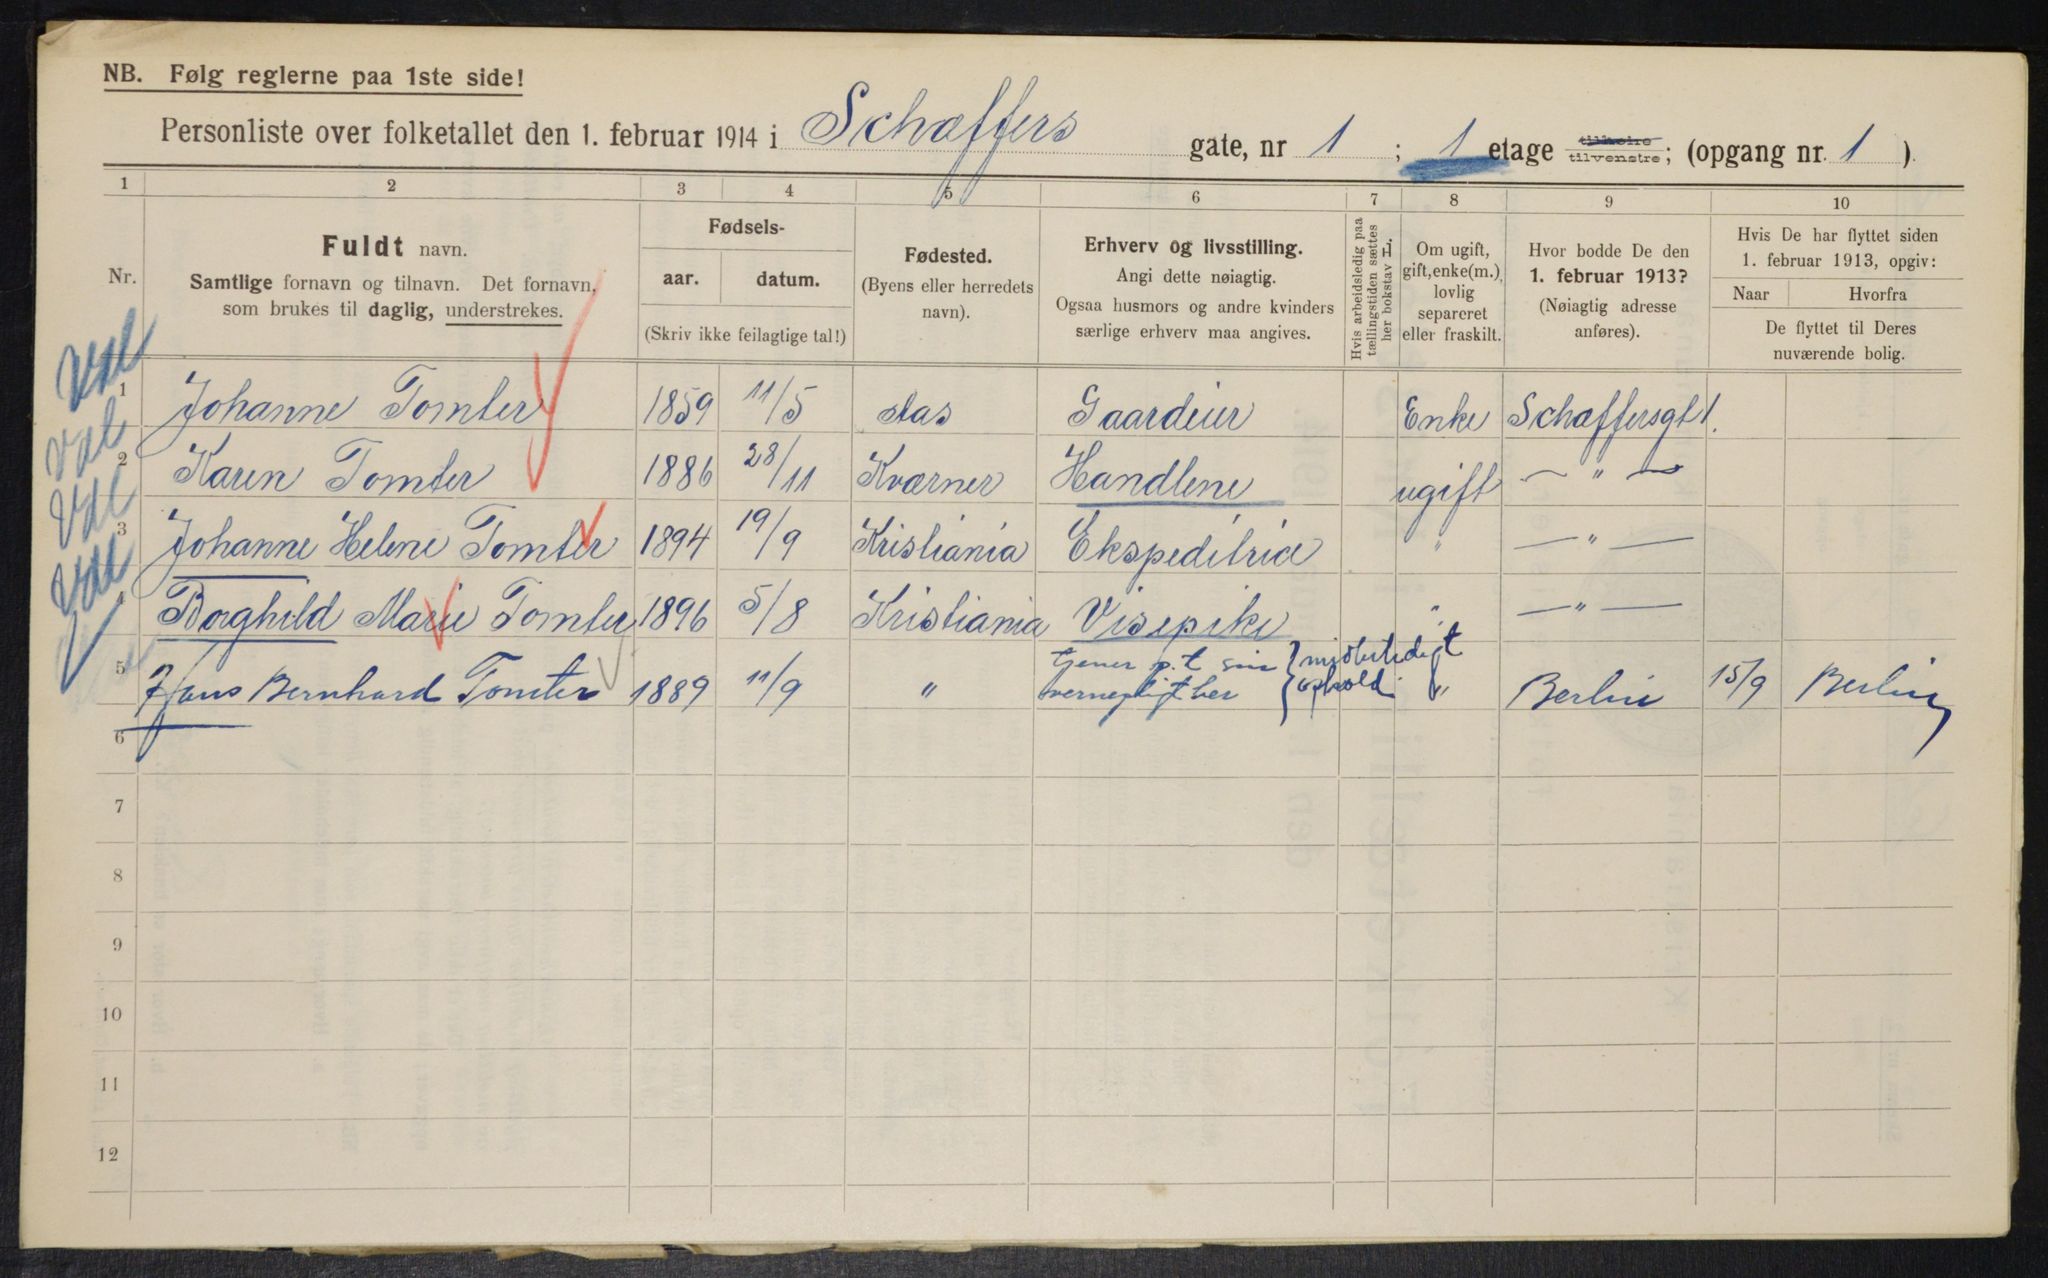 NB. Følg reglerne paa 1ste side!
Personliste over folketallet den 1. februar 1914 i Schæffers gate, nr 1 ; 1 etage tilhøire tilvenstre; (opgang nr. 1 ).
1 2 3 4 5 6 7 8 9 10
Nr.
Fuldt navn.
Samtlige fornavn og tilnavn. Det fornavn,
som brukes til daglig, understrekes.
Fødsels-
aar. datum.
(Skriv ikke feilagtige tal!)
Fødested.
(Byens eller herredets
navn).
Erhverv og livsstilling.
Angi dette nøiagtig.
Ogsaa husmors og andre kvinders
særlige erhverv maa angives.
Hvis arbeidsledig paa
tællingstiden sættes
her bokstav L
Om ugift,
gift, enke(m.),
lovlig
separeret
eller fraskilt.
Hvor bodde De den
1. februar 1913?
(Nøiagtig adresse
anføres).
Hvis De har flyttet siden
1. februar 1913, opgiv:
Naar Hvorfra
De flyttet til Deres
nuværende bolig.
1 Johanne Tomter 1859 11/5 Aas Gaardeier Enke Schæffersgt 1.
2 Karen Tomter 1886 28/11 Kværner Handlene ugift — " —
3 Johanne Helene Tomter 1894 19/9 Kristiania Ekspeditrice " — " —
4 Borghild Marie Tomter 1896 5/8 Kristiania Visepike " — " —
5 Hans Bernhard Tomter 1889 11/9 " tjener p.t sin vernepligt her midlertidigt ophold " Berlin 15/9 Berlin
6
7
8
9
10
11
12